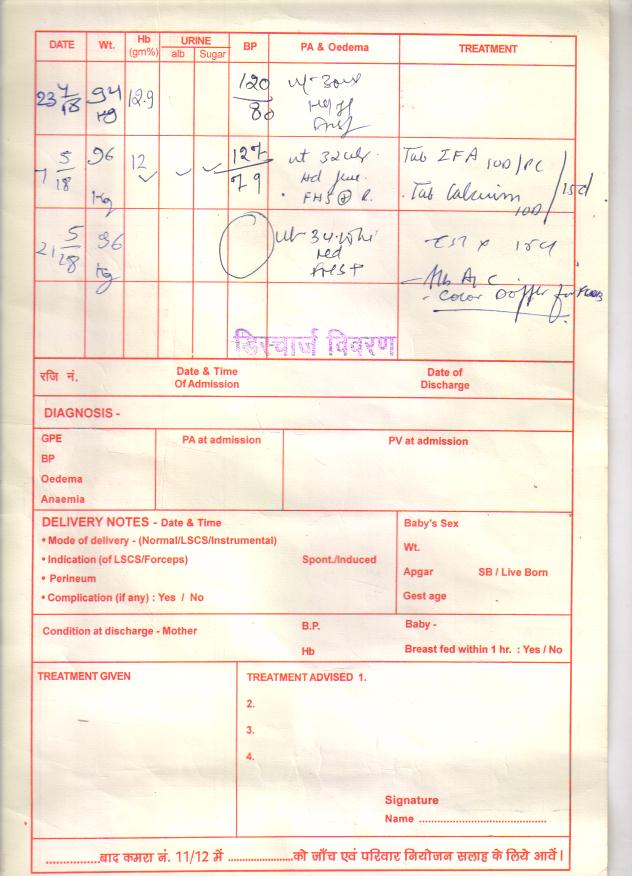 DATE Wt. Hb (gm%) URINE alb Sugar BP PA & Oedema TREATMENT
23 4/18 94 Kg 12.9 120/80
7 5/18 96 Kg 12 127/79 ut 32 Tab IFA 10D/PC
FHS Tab Calcium 10D /15d
21 5/18 96 Kg
- Color
डिस्चार्ज विवरण
रजि नं. Date & Time Of Admission Date of Discharge
DIAGNOSIS -
GPE PA at admission PV at admission
BP
Oedema
Anaemia
DELIVERY NOTES - Date & Time Baby's Sex
• Mode of delivery - (Normal/LSCS/Instrumental) Wt.
• Indication (of LSCS/Forceps) Spont./Induced Apgar SB / Live Born
• Perineum
• Complication (if any) : Yes / No Gest age
Condition at discharge - Mother B.P. Baby -
Hb Breast fed within 1 hr. : Yes / No
TREATMENT GIVEN TREATMENT ADVISED 1.
2.
3.
4.
Signature
Name ......................................
...............बाद कमरा नं. 11/12 में ..................को जाँच एवं परिवार नियोजन सलाह के लिये आवें।